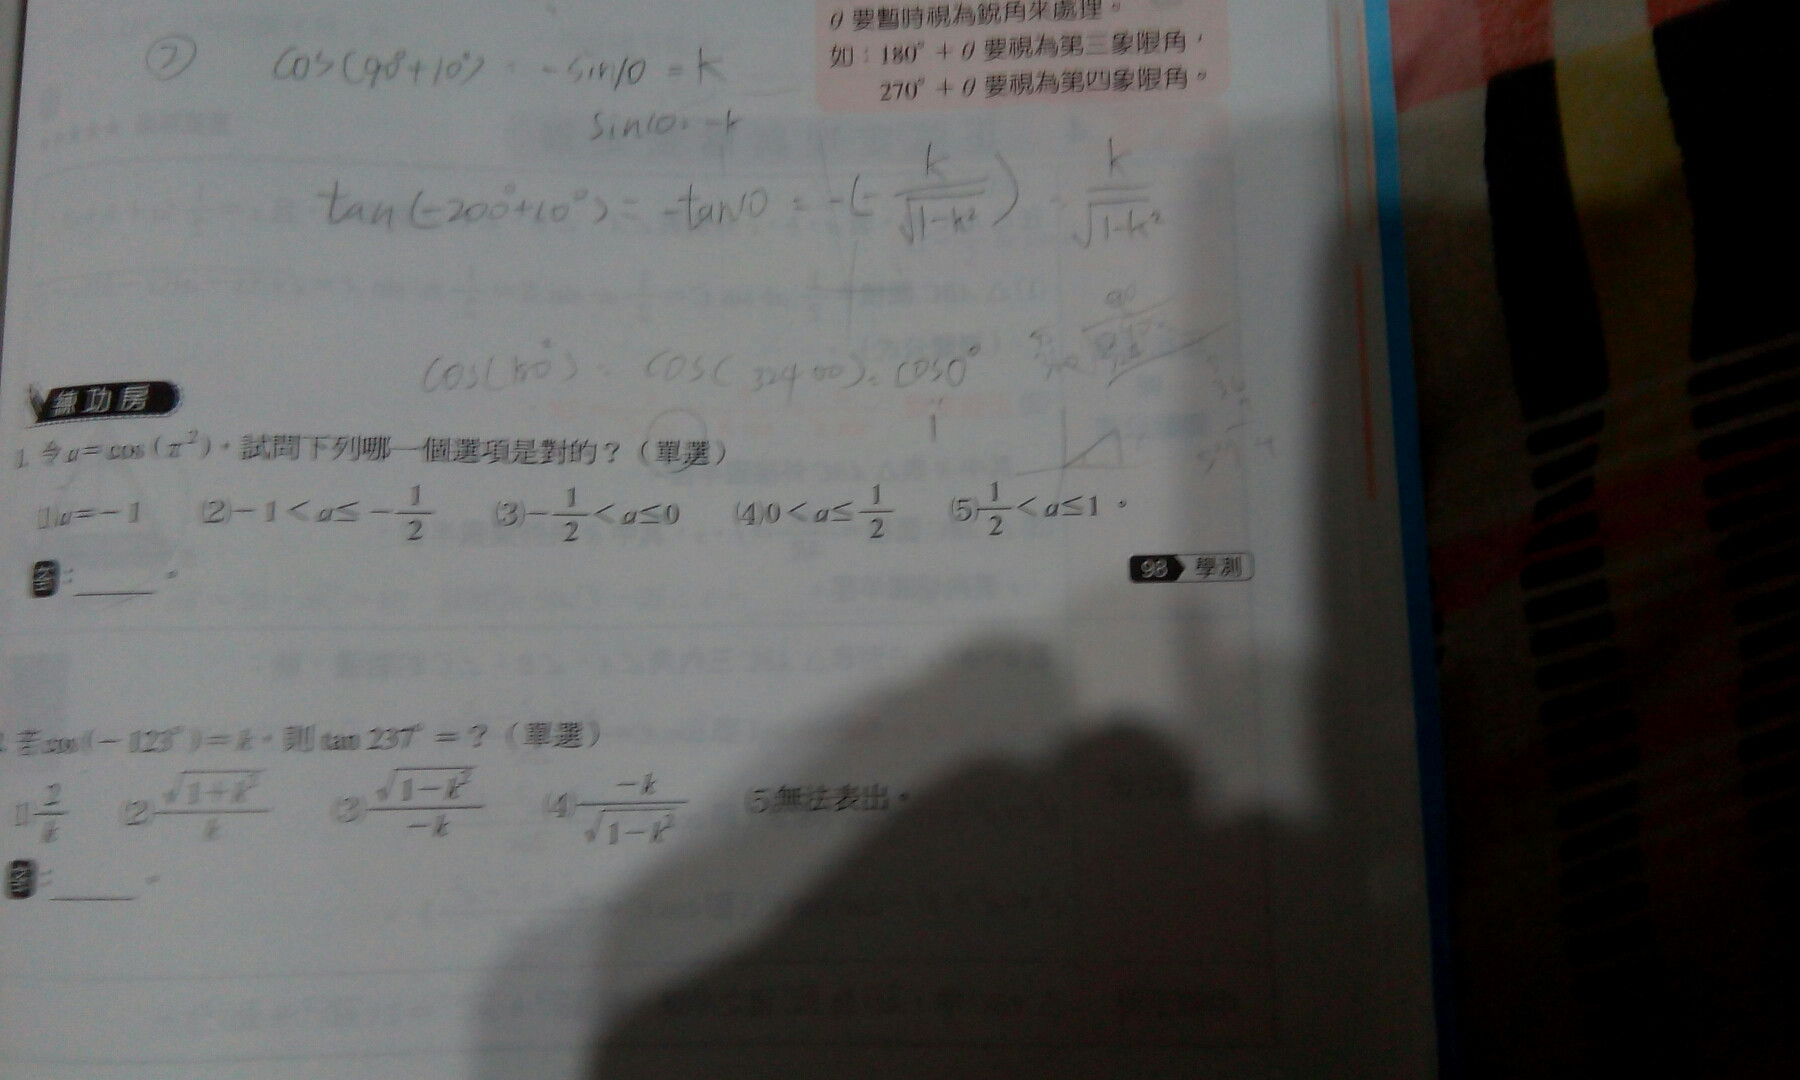 θ 要暫時視為銳角來處理。
如：180° + θ 要視為第三象限角，
270° + θ 要視為第四象限角。
② cos(90°+10°) = -sin10 = k
sin10 = -k
tan(-200°+10°) = -tan10 = -(- k/√1-k²) = k/√1-k²
cos(180°) = cos(32400) = cos0°
1
練功房
1. 令 a = cos(π²)，試問下列哪一個選項是對的？（單選）
(1) a = -1 (2) -1 < a ≤ -1/2 (3) -1/2 < a ≤ 0 (4) 0 < a ≤ 1/2 (5) 1/2 < a ≤ 1。
答：______。
98 學測
2. 若 cos(-123°) = k，則 tan 237° = ？（單選）
(1) 2/k (2) √1+k²/k (3) √1-k²/-k (4) -k/√1-k² (5) 無法表出。
答：______。